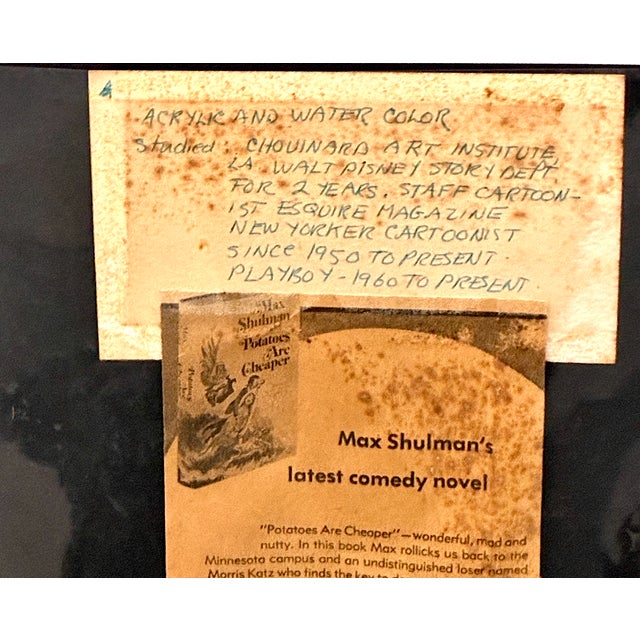 ACRYLIC AND WATER COLOR
Studied: CHOUINARD ART INSTITUTE,
LA. WALT DISNEY STORY DEPT
FOR 2 YEARS. STAFF CARTOON-
IST ESQUIRE MAGAZINE
NEW YORKER CARTOONIST
SINCE 1950 TO PRESENT.
PLAYBOY - 1960 TO PRESENT.
Max
Shulman
Potatoes
Are
Cheaper
Max Shulman's
latest comedy novel
"Potatoes Are Cheaper"—wonderful, mad and
nutty. In this book Max rollicks us back to the
Minnesota campus and an undistinguished loser named
Morris Katz who finds the key to